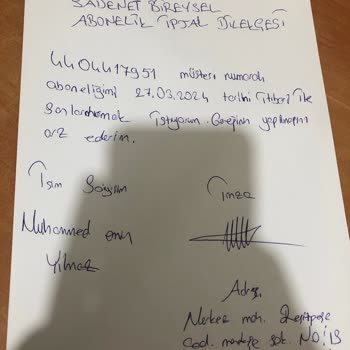 SADENET BİREYSEL
ABONELİK İPTAL DİLEKÇESİ
4404417951 müşteri numaralı
aboneliğimi 27.03.2024 tarihi itibari ile
Sonlandırmak istiyorum. Gereğinin yapılmasını
arz ederim.
İsim Soyisim
İmza
Muhammed emin
Yılmaz
Adres
Merkez mah.
Cad. sok. NO:18